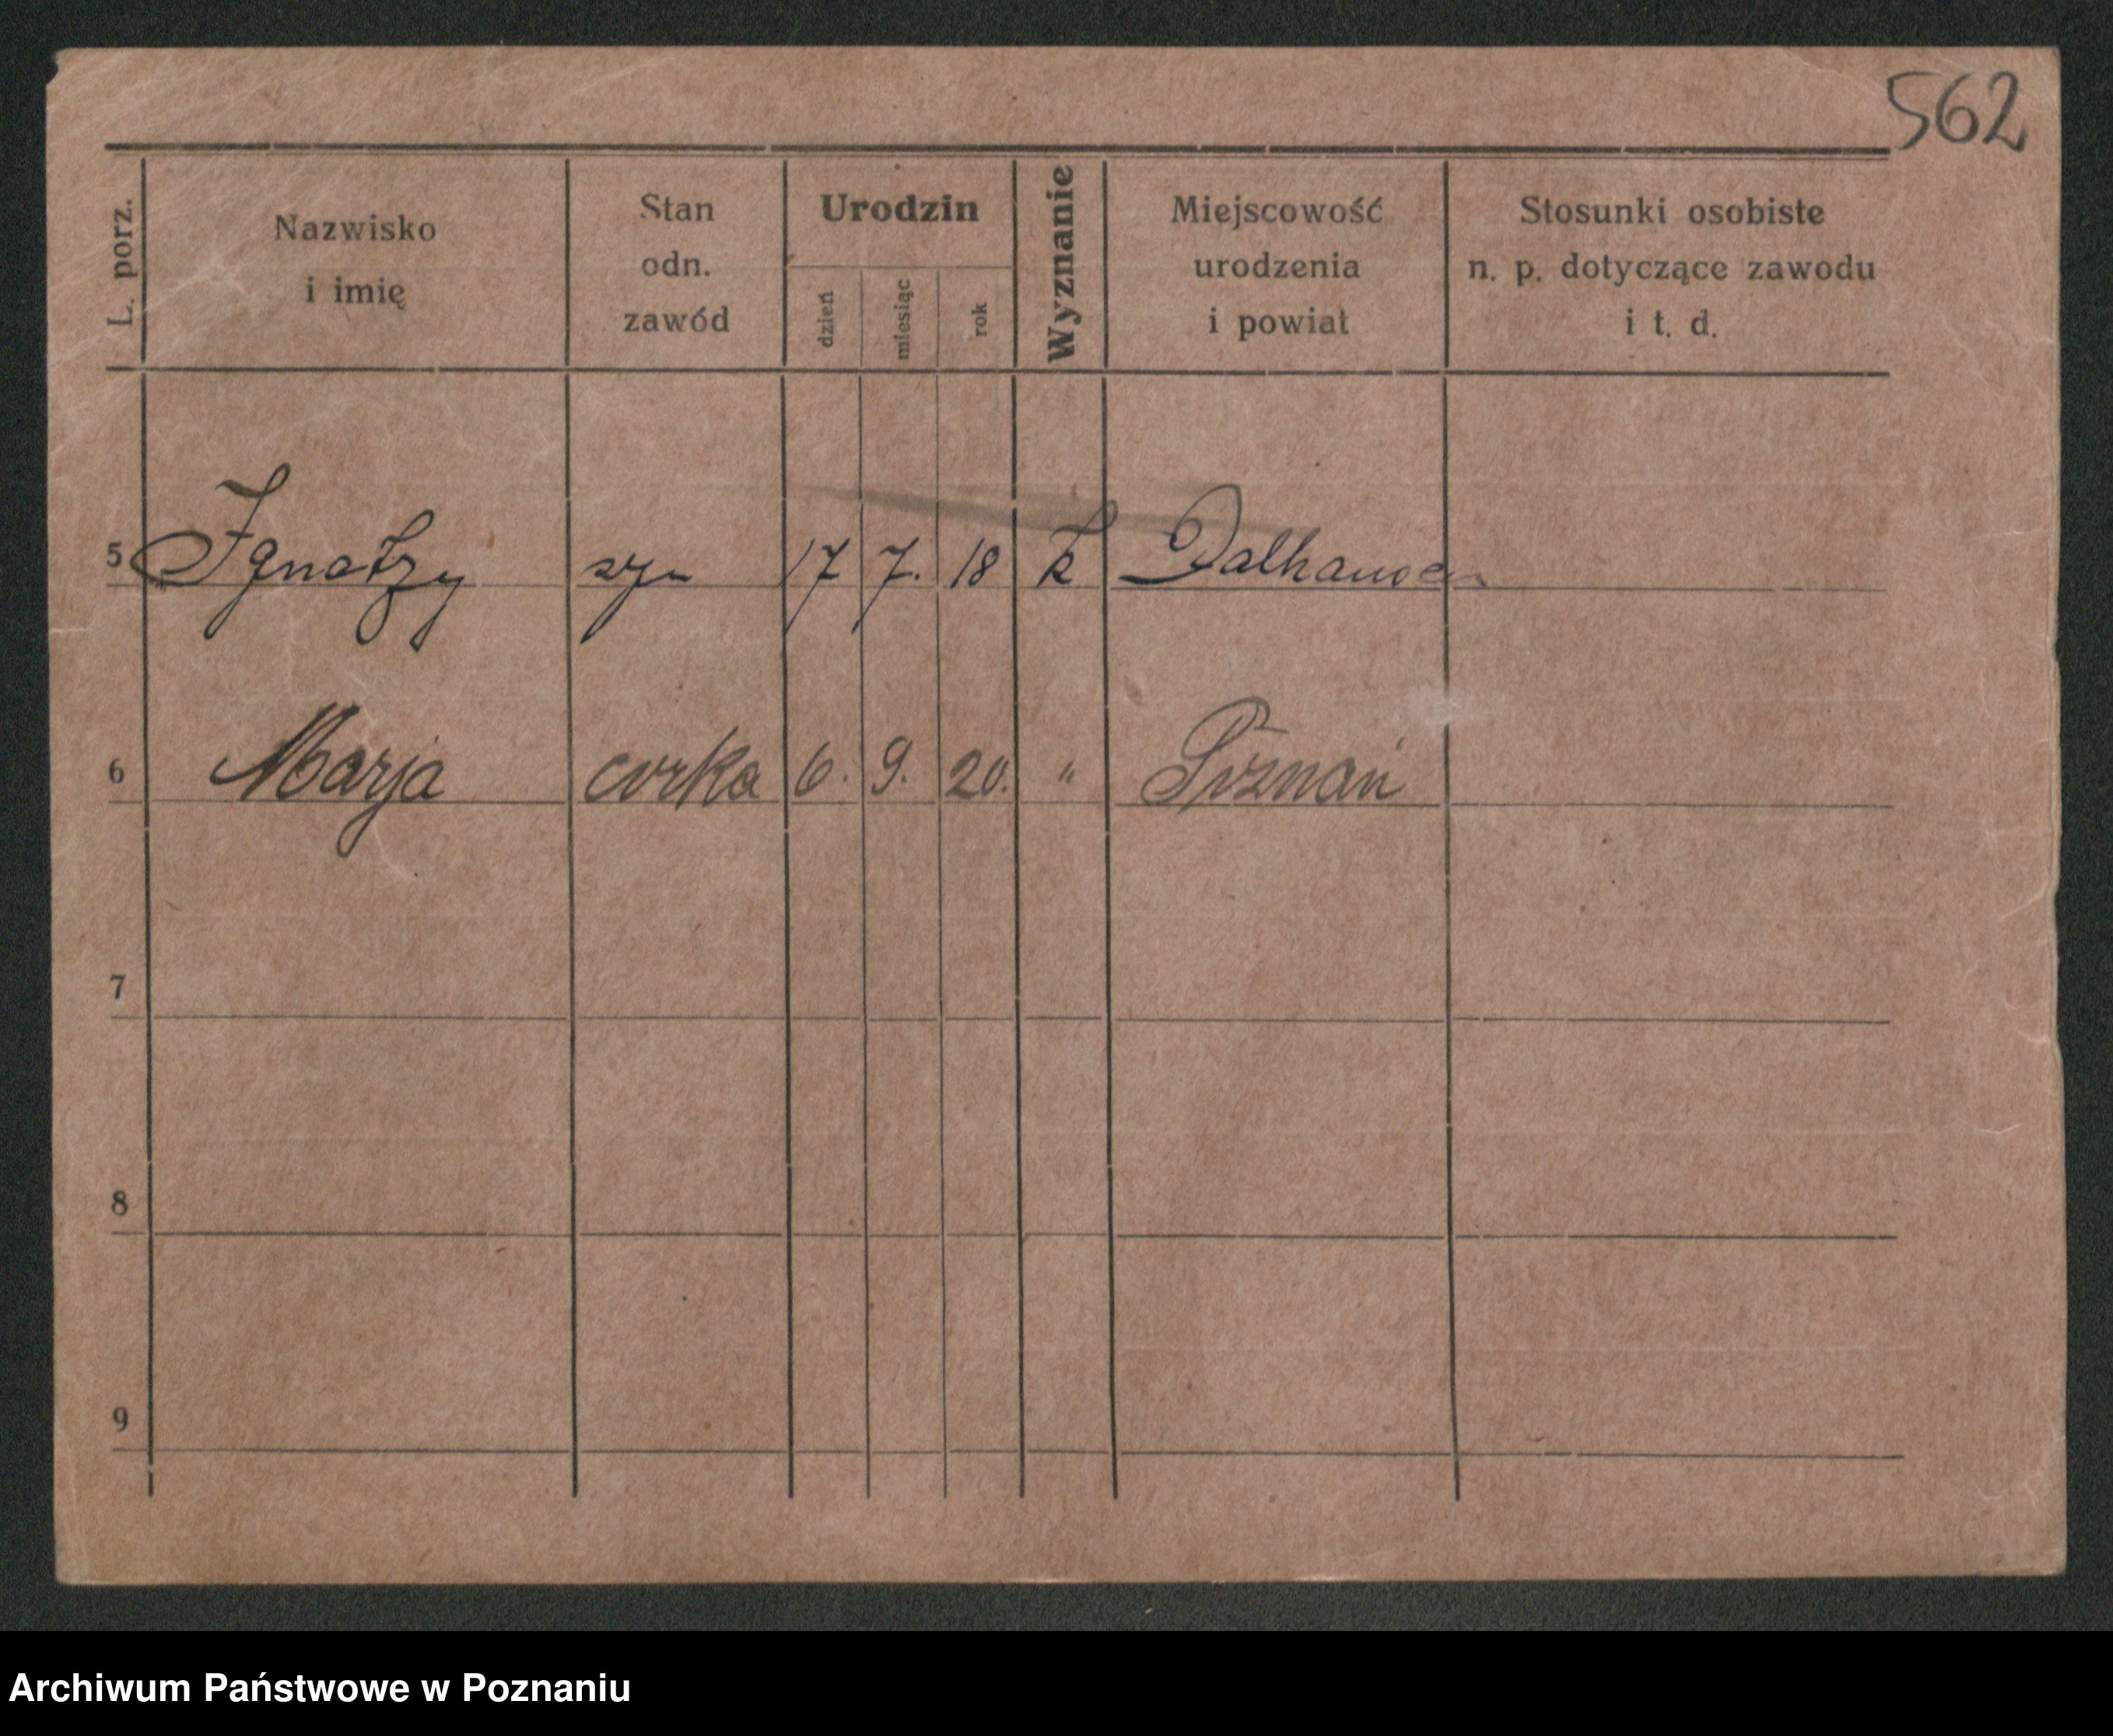 562
L. porz.
Nazwisko
i imię
Stan
odn.
zawód
Urodzin
dzień
miesiąc
rok
Wyznanie
Miejscowość
urodzenia
i powiat
Stosunki osobiste
n. p. dotyczące zawodu
i t. d.
5 Ignatzy syn 17 7. 18 k Dalhausen
6 Marja corka 6. 9. 20. " Poznań
7
8
9
Archiwum Państwowe w Poznaniu